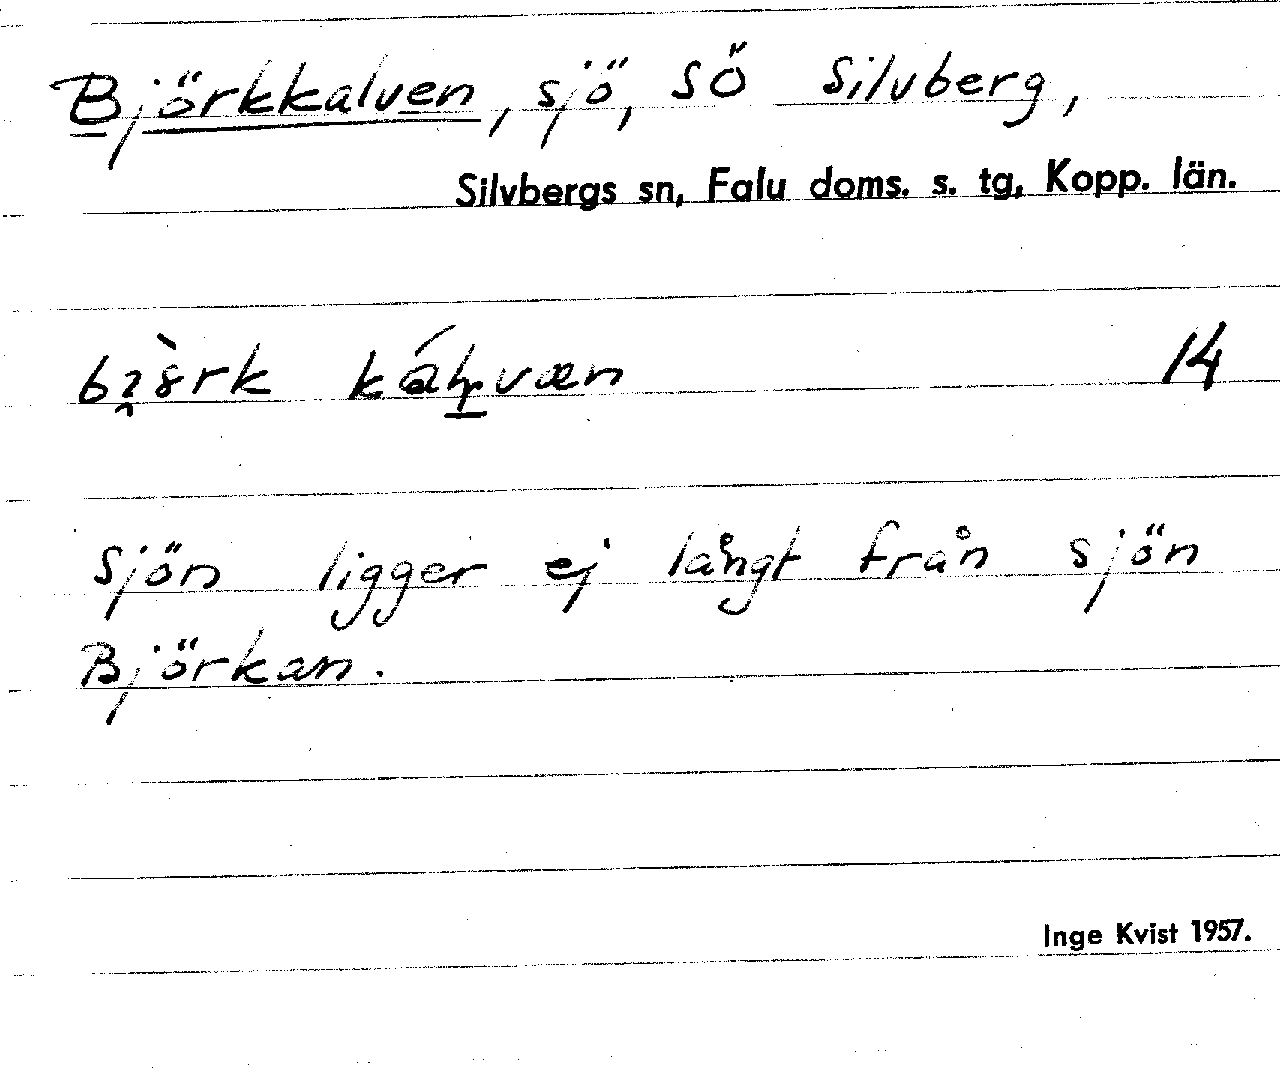 Björkkalven, sjö, SÖ Silvberg,
Silvbergs sn, Falu doms. s. tg, Kopp. län.
14
Sjön ligger ej långt från sjön
Björkan.
Inge Kvist 1957.